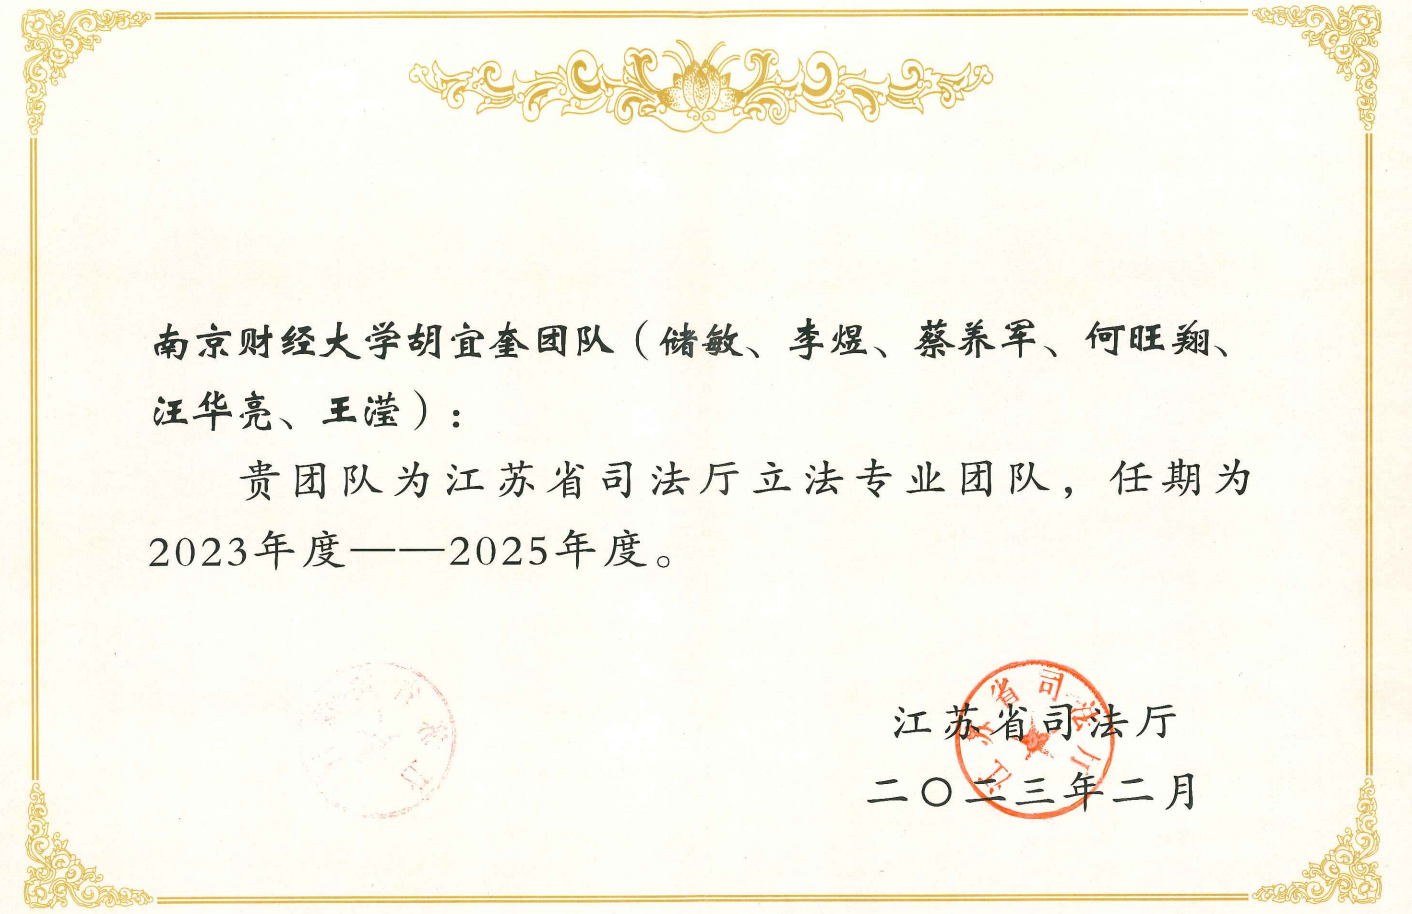 南京财经大学胡宜奎团队（储敏、李煜、蔡养军、何旺翔、
汪华亮、王滢）：
贵团队为江苏省司法厅立法专业团队，任期为
2023年度——2025年度。
江苏省司法厅
江苏省司法厅
二〇二三年二月